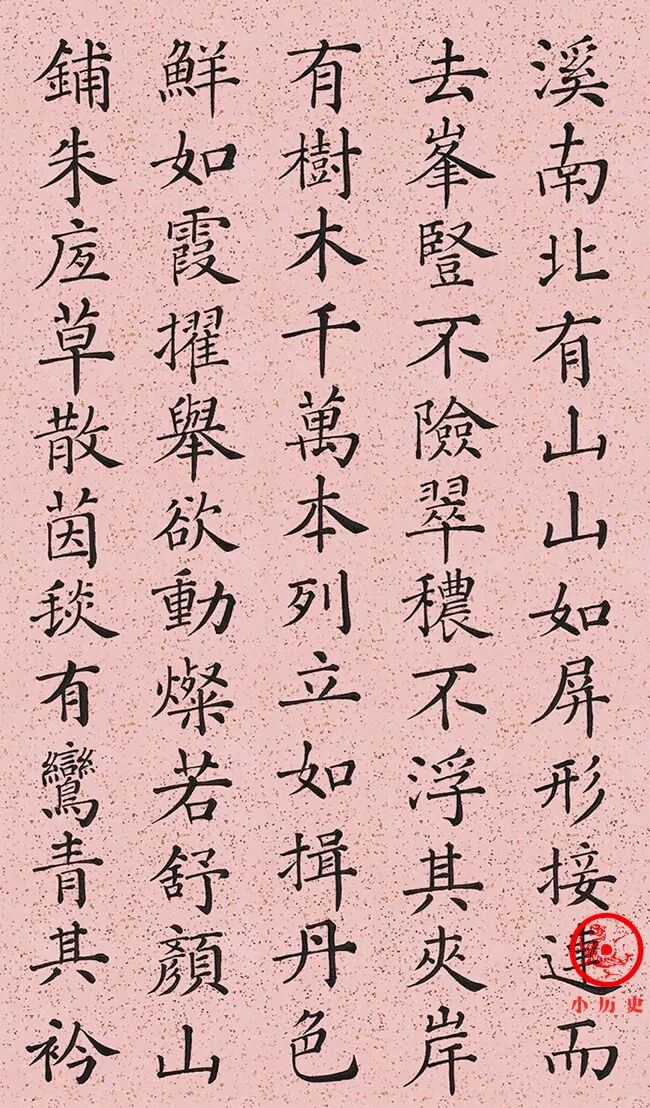 溪南北有山山如屏形接連而
去峯豎不險翠穠不浮其夾岸
有樹木千萬本列立如揖丹色
鮮如霞擢舉欲動燦若舒顏山
鋪朱草散茵毯有鸞青其衿
小历史